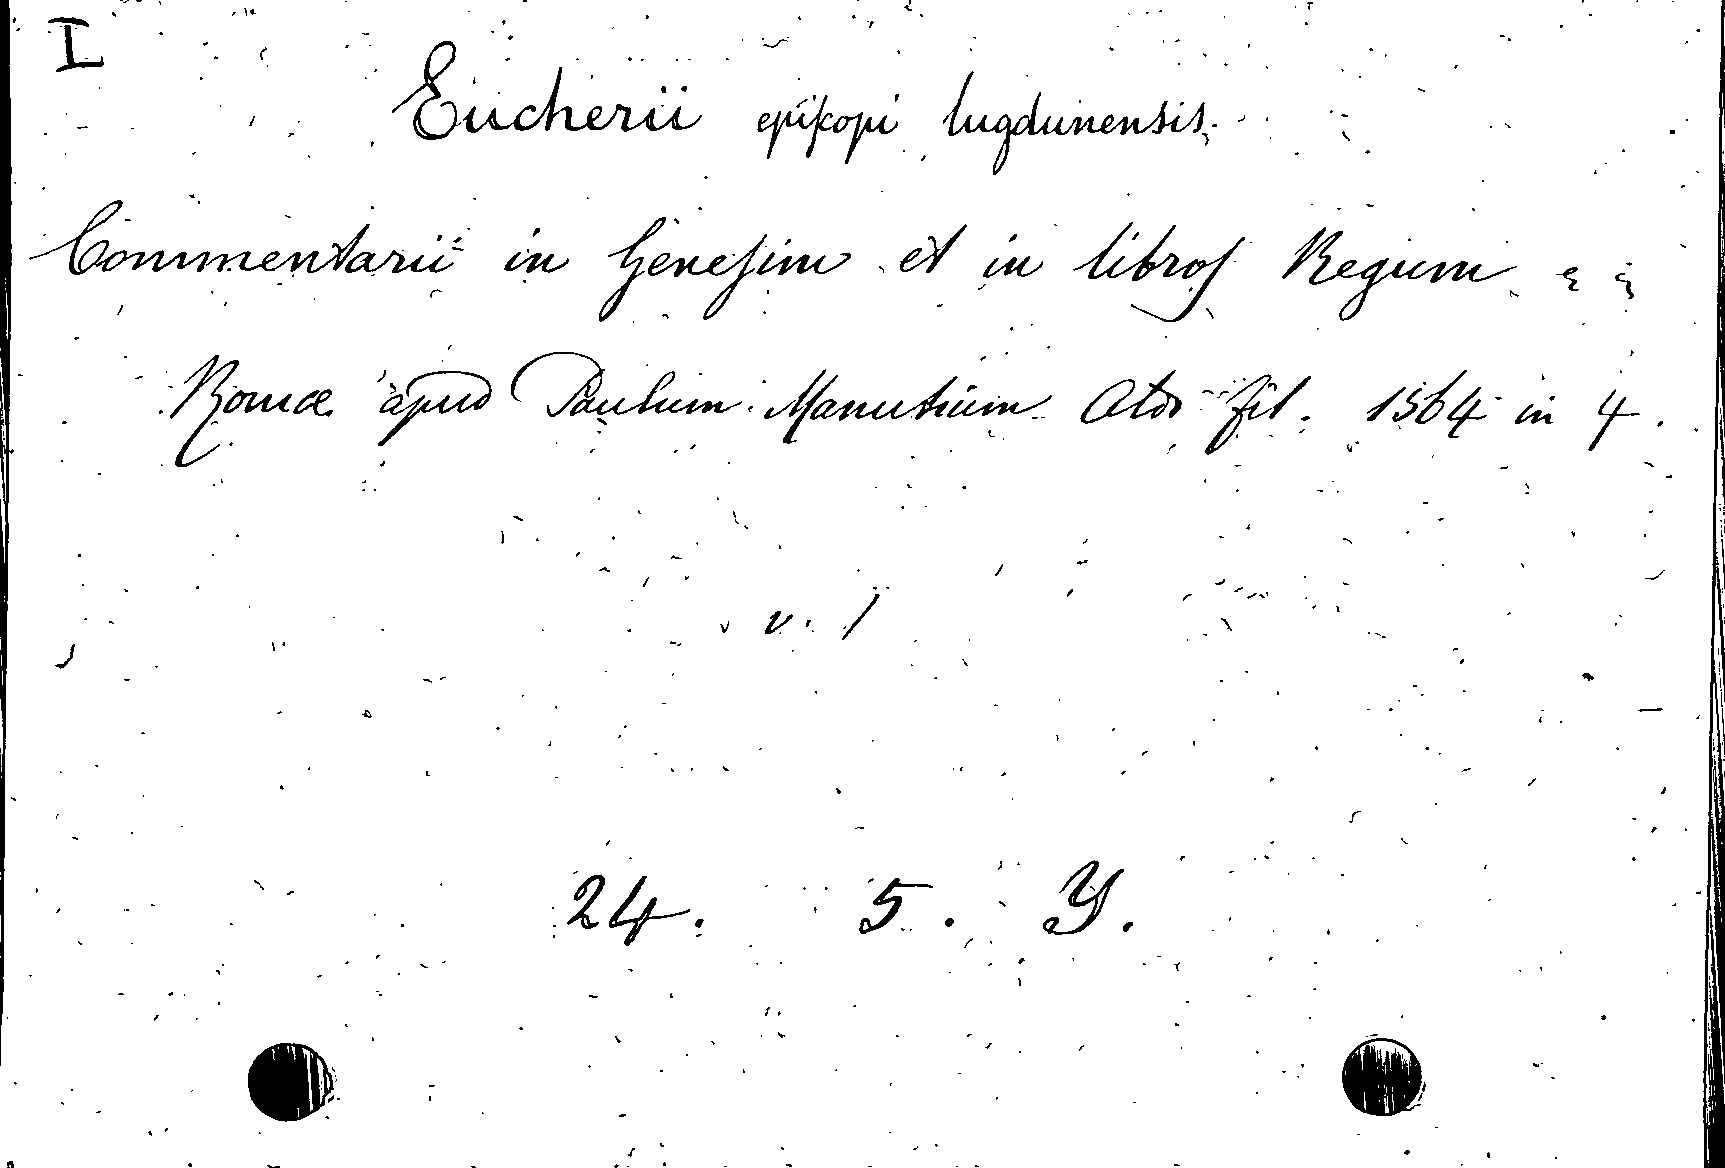 I
Eucherii episcopi lugdunensis.
Commentarii in Genesim et in libros Regum
Romæ apud Paulum Manutium Aldi fil. 1564 in 4.
v. 1
24. 5. Y.